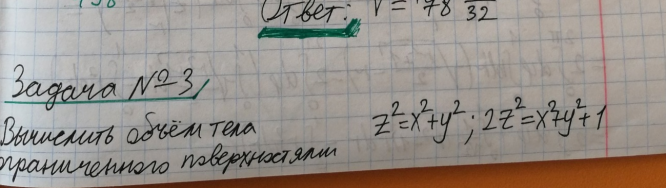 Ответ: V = 78 /32
Задача №3
Вычислить объём тела
ограниченного поверхностями
z²=x²+y²; 2z²=x²+y²+1